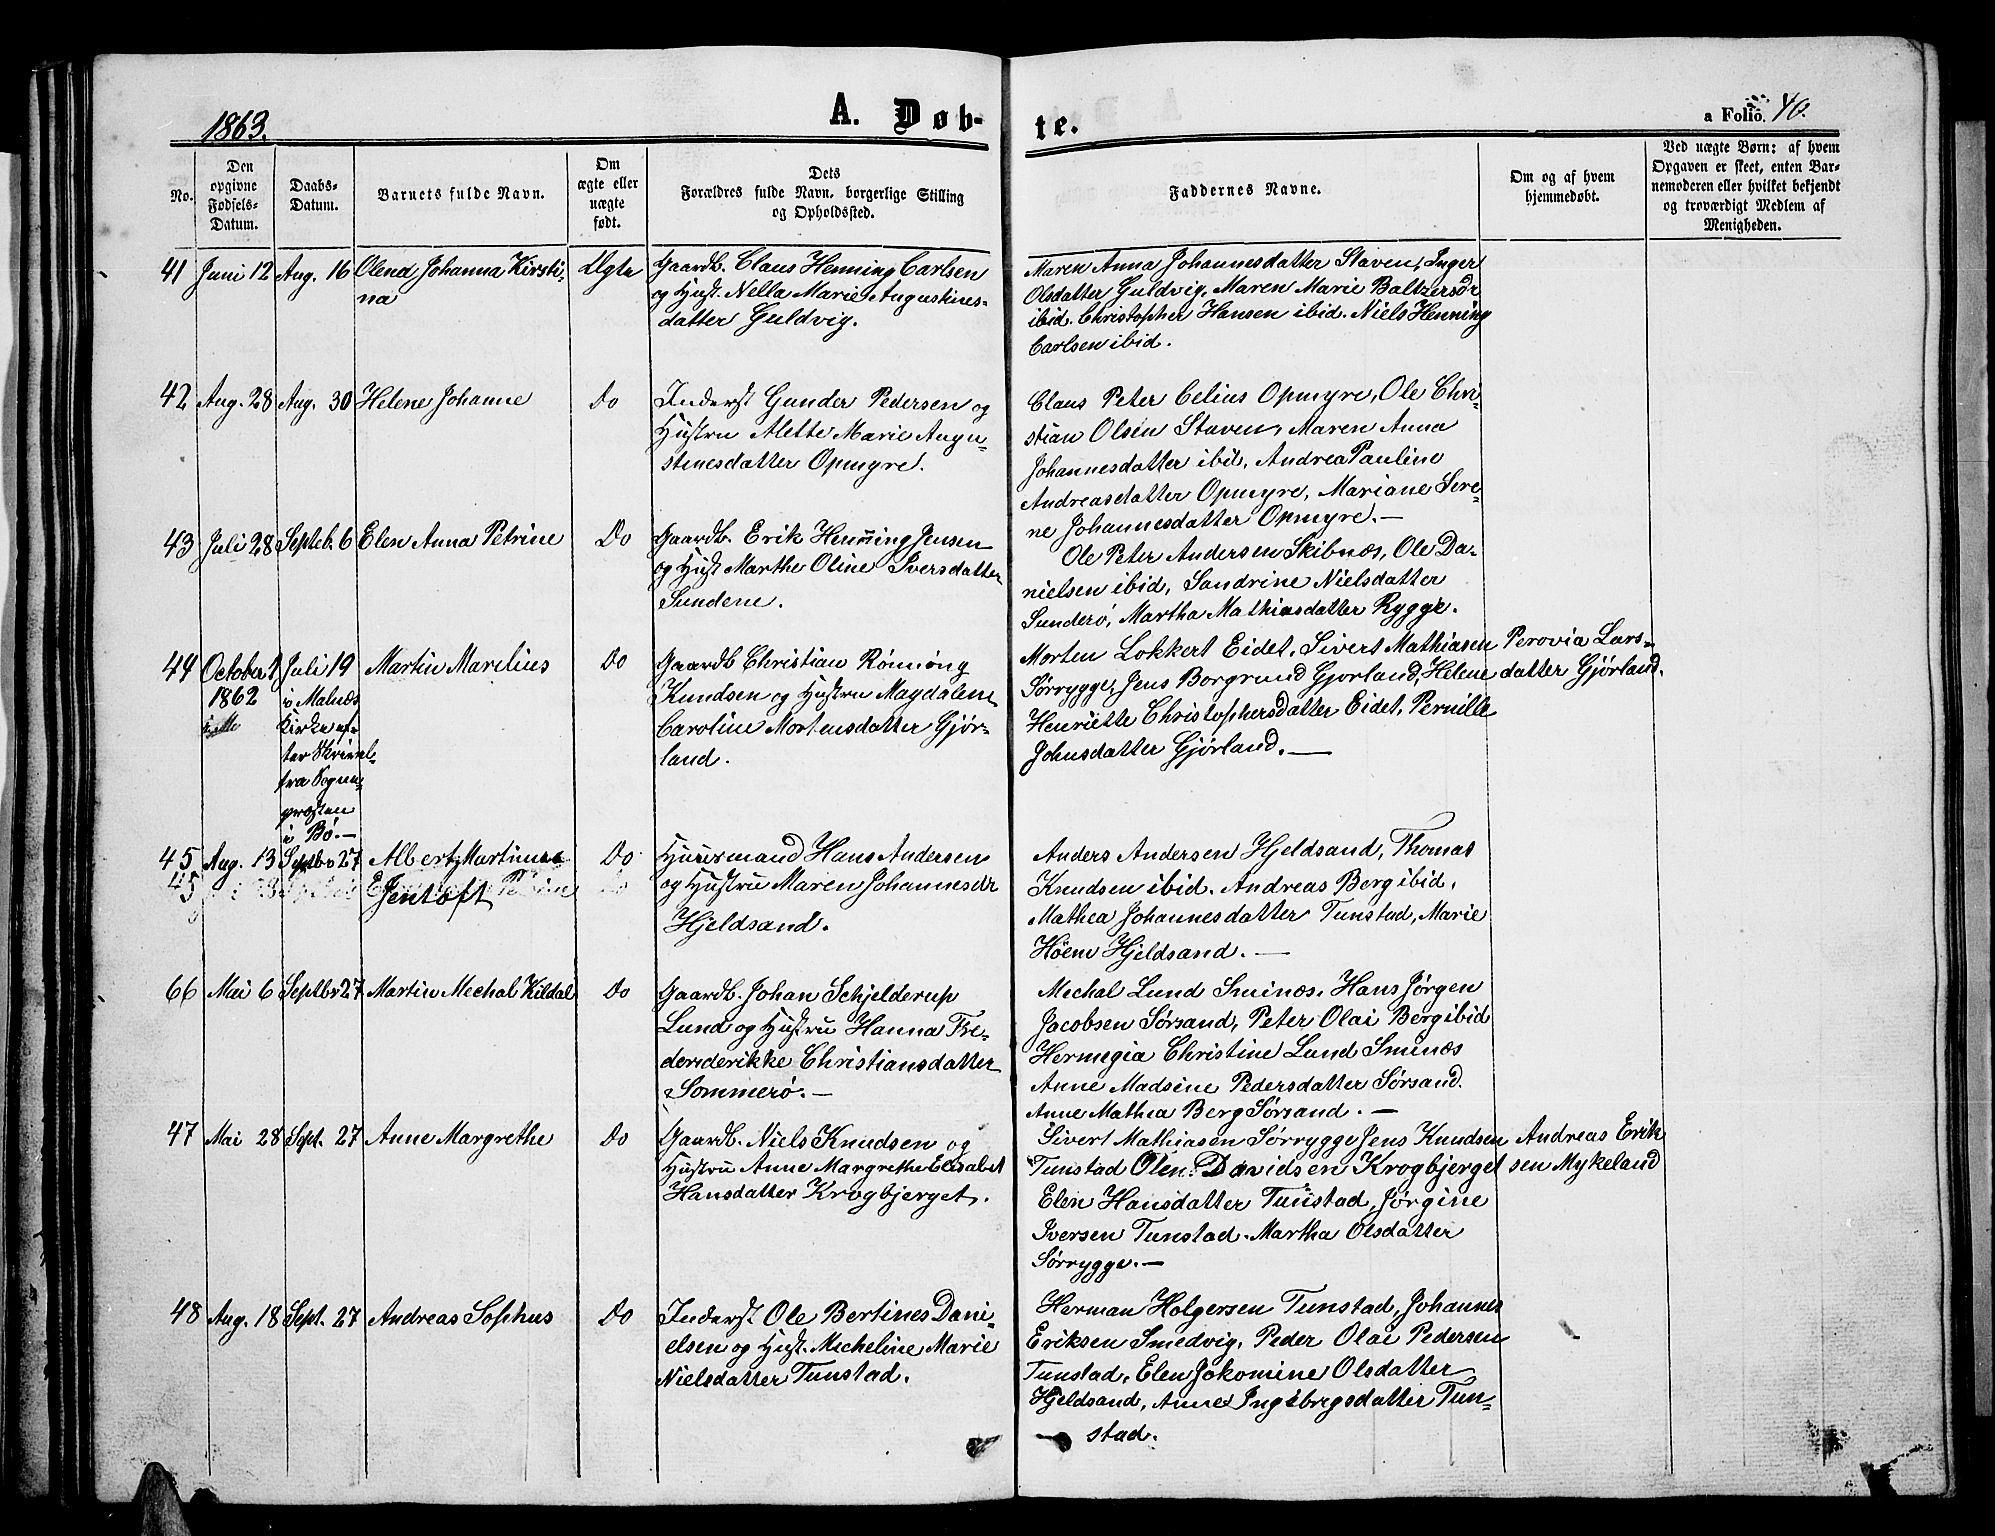 1863.
A. Døb-
te.
a Folio. 40.
No.
Den
opgivne
Fødsels-
Datum.
Daabs-
Datum.
Barnets fulde Navn.
Om
ægte eller
uægte
født.
Dets
Forældres fulde Navn, borgerlige Stilling
og Opholdssted.
Faddernes Navne.
Om og af hvem
hjemmedøbt.
Ved uægte Børn: af hvem
Opgaven er skeet, enten Bar-
nemoderen eller hvilket bekjendt
og troværdigt Medlem af
Menigheden.
41 Juni 12 Aug. 16 Olena Johanna Kirsti-
na
Ægte
Gaardb. Claus Henning Carlsen
og Hust. Nella Marie Augustines-
datter Guldvig.
Maren Anna Johannesdatter Staven, Inger
Olsdatter Guldvig, Maren Marie Baltzersdr
ibid. Christopher Hansen ibid. Niels Henning
Carlsen ibid.
42 Aug. 28 Aug. 30 Helene Johanne
Do
Inderst Gunder Pedersen og
Hustru Alette Marie Augu-
stinesdatter Opmyre.
Claus Peter Celius Opmyre, Ole Chri-
stian Olsen Staven, Maren Anna
Johannesdatter ibid, Andrea Pauline
Andreasdatter Opmyre, Mariane Sere-
ne Johannesdatter Opmyre.—
43 Juli 28 Septeb. 6 Elen Anna Petrine
Do
Gaardb. Erik Henning Jensen
og Hust Marthe Oline Iversdatter
Sundene.
Ole Peter Andersen Skibnæs, Ole Da-
nielsen ibid, Sandrine Nielsdatter
Sunderö, Martha Mathiasdatter Rygge.
44 October 1
1862
Juli 19
i Malnæs
Kirke ef-
ter Skrivel-
fra Sogne-
præsten
i Bö.—
Martin Marelius
Do
Gaardb Christian Rönning
Knudsen og Hustru Magdalene
Caroline Mortensdatter Gjör-
land.
Morten Lokkert Eidet, Sivert Mathiasen Perovia Lars-
Sörrygge, Jens Borgrund Gjorland, Helene datter Gjörland.
Henriette Christophersdatter Eidet, Pernille
Johnsdatter Gjörland.—
45 Aug. 13 Septbr 27 Albert Martinus
45 Jentoft
Do
Huusmand Hans Andersen
og Hustru Maren Johannesdr
Hjeldsand.
Anders Andersen Hjeldsand, Thomas
Knudsen ibid. Andreas Berg ibid,
Mathea Johannesdatter Tunstad, Marie
Höem Hjeldsand.—
66 Mai 6 Septbr 27 Martin Mechal Kildal
Do
Gaardb. Johan Schjelderup
Lund og Hustru Hanna Fre-
deriderikke Christiansdatter
Sommerö.—
Mechal Lund Sminæs, Hans Jörgen
Jacobsen Sörsand, Peter Olai Berg ibid
Hermegia Christine Lund Sminæs
Anne Madsine Pedersdatter Sörsand.
Anne Mathea Berg Sörsand.—
47 Mai 28 Sept. 27 Anne Margrethe
Do
Gaardb. Niels Knudsen og
Hustru Anne Margrethe Elisabet
Hansdatter Krogbjerget.
Sivert Mathiasen Sörrygge Jens Knudsen Andreas Erik
Tunstad Olen Davidsen Krogbjerget sen Mykeland
Elen Hansdatter Tunstad, Jörgine
Iversen Tunstad. Martha Olsdatter
Sörrygge.—
48 Aug. 18 Sept. 27 Andreas Sophus
Do
Inderst Ole Bertines Dani-
elsen og Hust. Micheline Marie
Nielsdatter Tunstad.
Herman Holgersen Tunstad, Johannes
Eriksen Smedvig, Peder Olai Pedersen
Tunstad, Elen Jokomine Olsdatter
Hjeldsand, Anne Ingebregsdatter Tun-
stad.